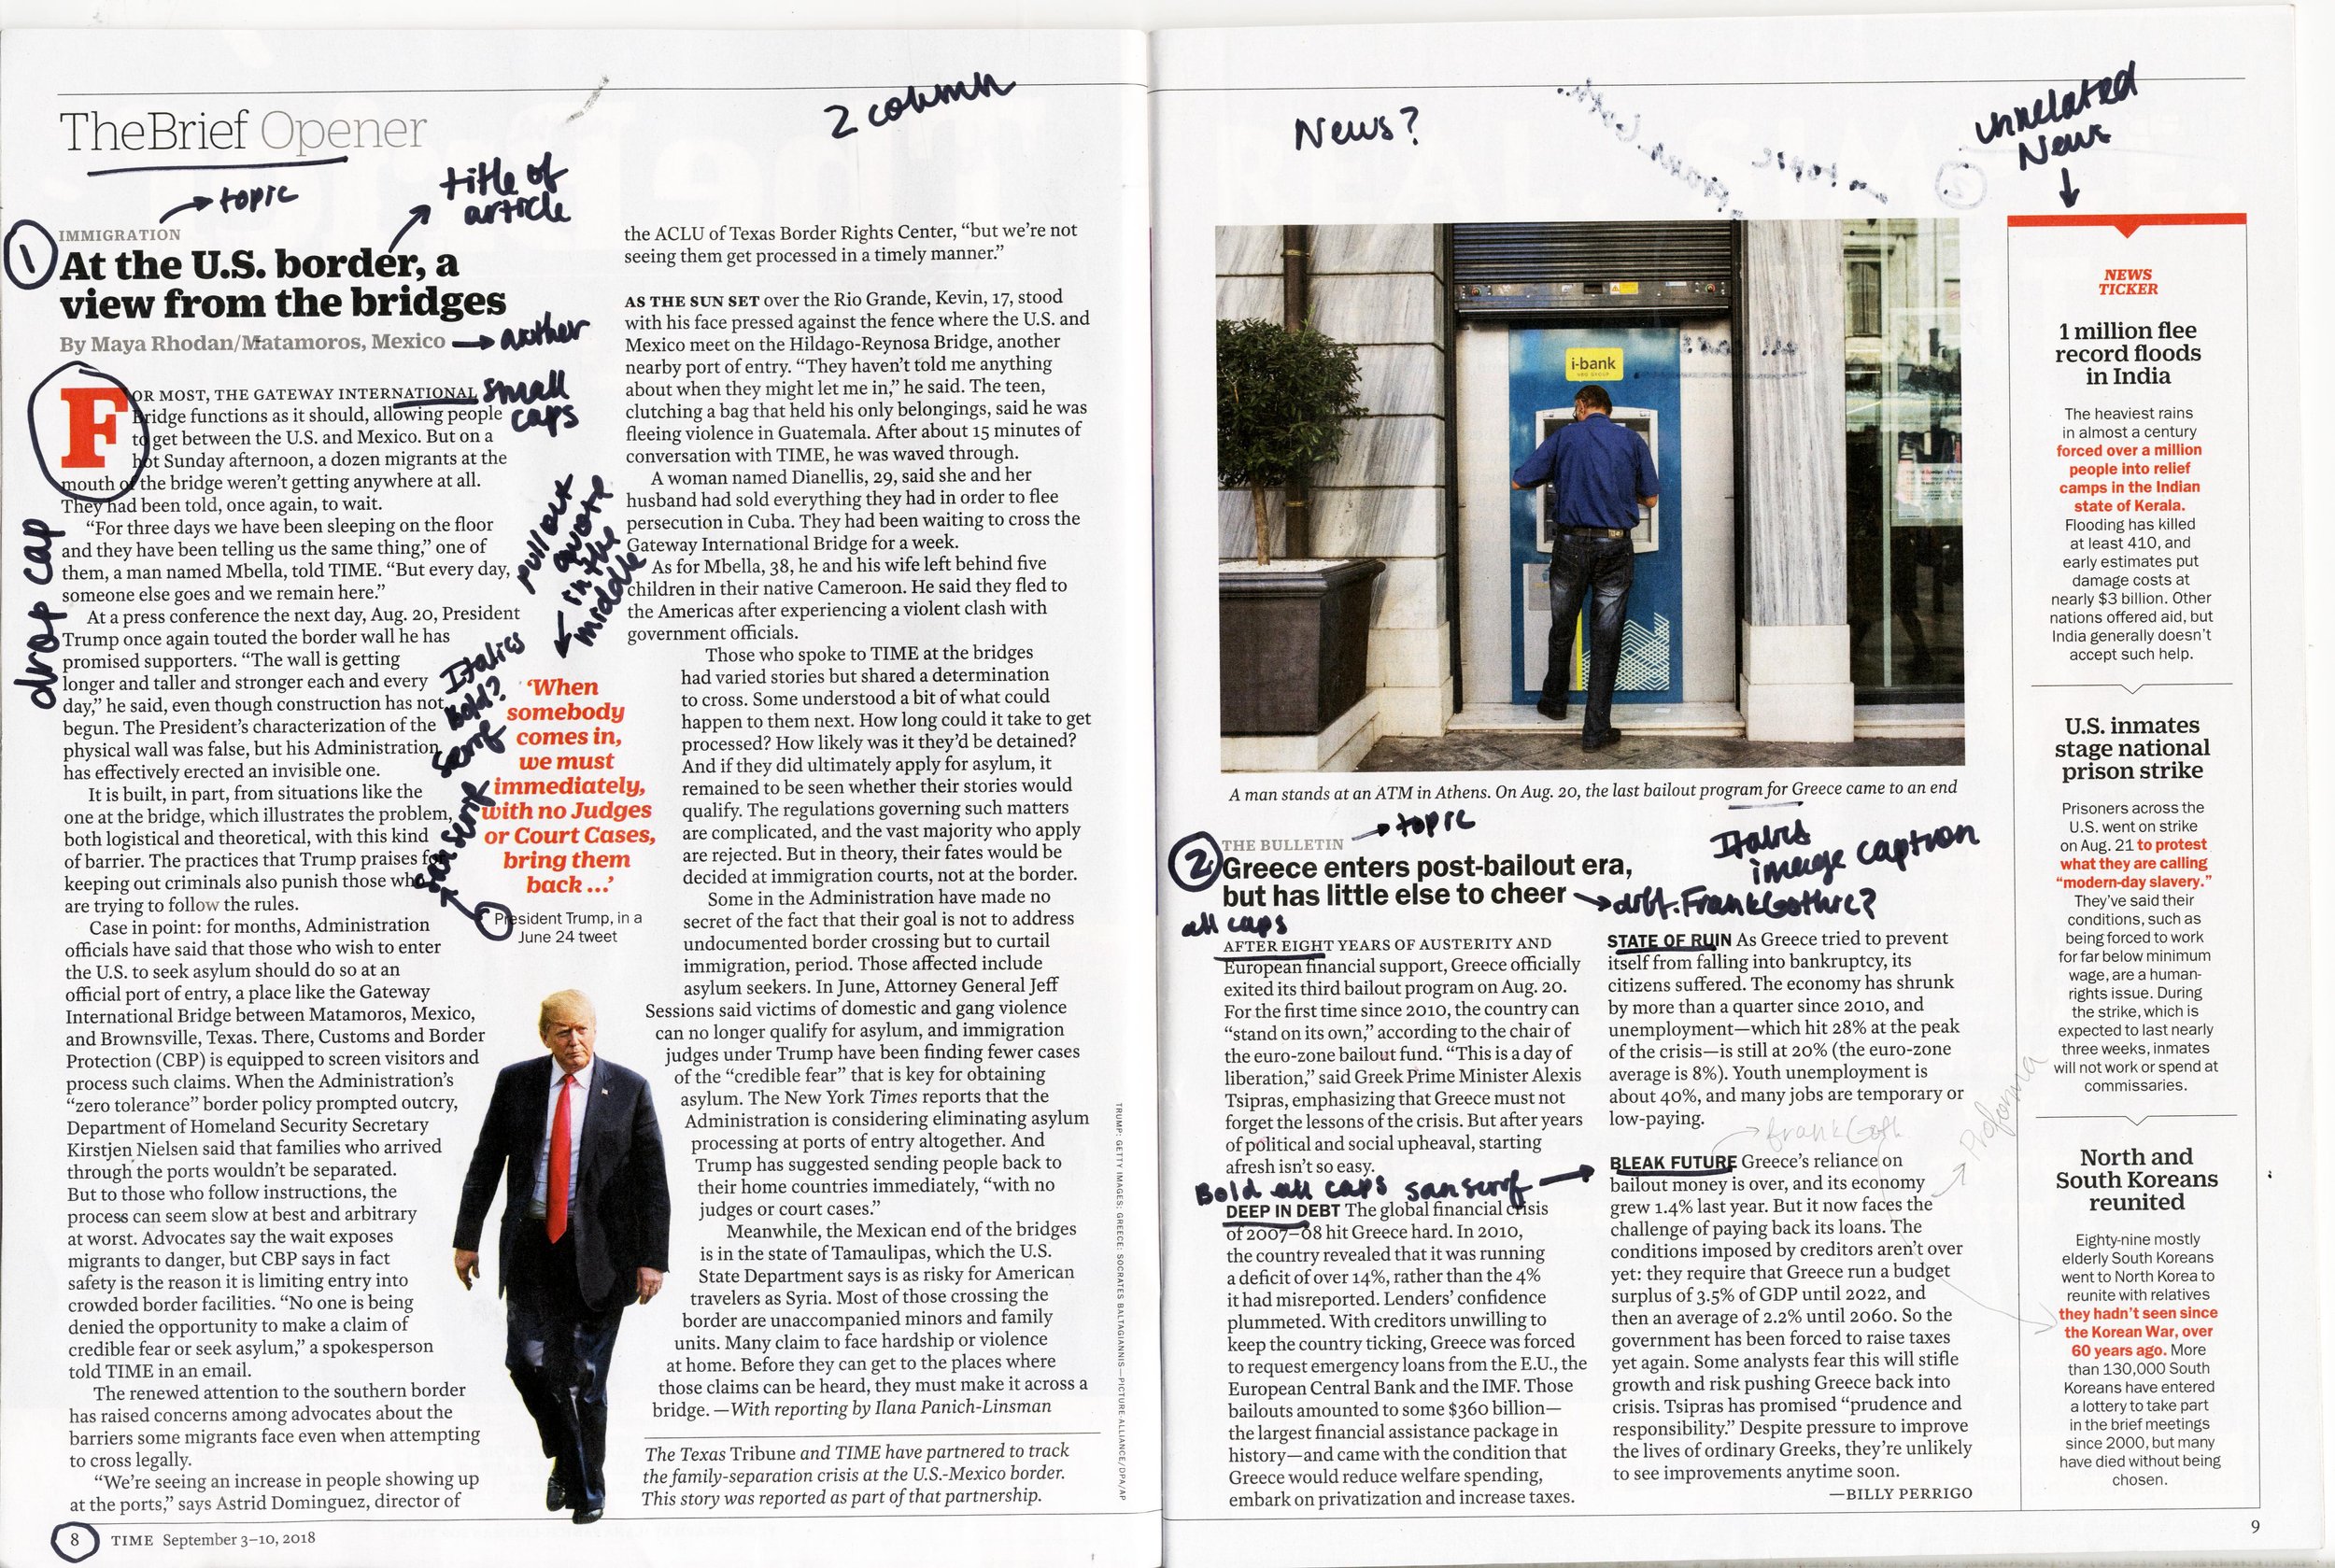 TheBrief Opener
2 column
→ topic
title of
article
1
IMMIGRATION
At the U.S. border, a
view from the bridges
By Maya Rhodan/Matamoros, Mexico
→ author
FOR MOST, THE GATEWAY INTERNATIONAL
small
caps
Bridge functions as it should, allowing people
to get between the U.S. and Mexico. But on a
hot Sunday afternoon, a dozen migrants at the
mouth of the bridge weren't getting anywhere at all.
They had been told, once again, to wait.
drop cap
“For three days we have been sleeping on the floor
and they have been telling us the same thing,” one of
them, a man named Mbella, told TIME. “But every day,
someone else goes and we remain here.”
At a press conference the next day, Aug. 20, President
Trump once again touted the border wall he has
promised supporters. “The wall is getting
longer and taller and stronger each and every
day,” he said, even though construction has not
begun. The President's characterization of the
physical wall was false, but his Administration
has effectively erected an invisible one.
It is built, in part, from situations like the
one at the bridge, which illustrates the problem,
both logistical and theoretical, with this kind
of barrier. The practices that Trump praises for
keeping out criminals also punish those who
are trying to follow the rules.
Case in point: for months, Administration
officials have said that those who wish to enter
the U.S. to seek asylum should do so at an
official port of entry, a place like the Gateway
International Bridge between Matamoros, Mexico,
and Brownsville, Texas. There, Customs and Border
Protection (CBP) is equipped to screen visitors and
process such claims. When the Administration's
“zero tolerance” border policy prompted outcry,
Department of Homeland Security Secretary
Kirstjen Nielsen said that families who arrived
through the ports wouldn't be separated.
But to those who follow instructions, the
process can seem slow at best and arbitrary
at worst. Advocates say the wait exposes
migrants to danger, but CBP says in fact
safety is the reason it is limiting entry into
crowded border facilities. “No one is being
denied the opportunity to make a claim of
credible fear or seek asylum,” a spokesperson
told TIME in an email.
The renewed attention to the southern border
has raised concerns among advocates about the
barriers some migrants face even when attempting
to cross legally.
“We're seeing an increase in people showing up
at the ports,” says Astrid Dominguez, director of
pull out
quote
in the
middle
Italics
Bold?
Serif
‘When
somebody
comes in,
we must
immediately,
with no Judges
or Court Cases,
bring them
back ...’
san serif
President Trump, in a
June 24 tweet
the ACLU of Texas Border Rights Center, “but we're not
seeing them get processed in a timely manner.”
AS THE SUN SET over the Rio Grande, Kevin, 17, stood
with his face pressed against the fence where the U.S. and
Mexico meet on the Hildago-Reynosa Bridge, another
nearby port of entry. “They haven't told me anything
about when they might let me in,” he said. The teen,
clutching a bag that held his only belongings, said he was
fleeing violence in Guatemala. After about 15 minutes of
conversation with TIME, he was waved through.
A woman named Dianellis, 29, said she and her
husband had sold everything they had in order to flee
persecution in Cuba. They had been waiting to cross the
Gateway International Bridge for a week.
As for Mbella, 38, he and his wife left behind five
children in their native Cameroon. He said they fled to
the Americas after experiencing a violent clash with
government officials.
Those who spoke to TIME at the bridges
had varied stories but shared a determination
to cross. Some understood a bit of what could
happen to them next. How long could it take to get
processed? How likely was it they'd be detained?
And if they did ultimately apply for asylum, it
remained to be seen whether their stories would
qualify. The regulations governing such matters
are complicated, and the vast majority who apply
are rejected. But in theory, their fates would be
decided at immigration courts, not at the border.
Some in the Administration have made no
secret of the fact that their goal is not to address
undocumented border crossing but to curtail
immigration, period. Those affected include
asylum seekers. In June, Attorney General Jeff
Sessions said victims of domestic and gang violence
can no longer qualify for asylum, and immigration
judges under Trump have been finding fewer cases
of the “credible fear” that is key for obtaining
asylum. The New York Times reports that the
Administration is considering eliminating asylum
processing at ports of entry altogether. And
Trump has suggested sending people back to
their home countries immediately, “with no
judges or court cases.”
Meanwhile, the Mexican end of the bridges
is in the state of Tamaulipas, which the U.S.
State Department says is as risky for American
travelers as Syria. Most of those crossing the
border are unaccompanied minors and family
units. Many claim to face hardship or violence
at home. Before they can get to the places where
those claims can be heard, they must make it across a
bridge. —With reporting by Ilana Panich-Linsman
The Texas Tribune and TIME have partnered to track
the family-separation crisis at the U.S.-Mexico border.
This story was reported as part of that partnership.
TRUMP: GETTY IMAGES; GREECE: SOCRATES BALTAGIANNIS—PICTURE-ALLIANCE/DPA/AP
8 TIME September 3–10, 2018
News?
i-bank
A man stands at an ATM in Athens. On Aug. 20, the last bailout program for Greece came to an end
→ topic
Italics
image caption
2
THE BULLETIN
Greece enters post-bailout era,
but has little else to cheer
→ diff. FrankGothic?
all caps
AFTER EIGHT YEARS OF AUSTERITY AND
European financial support, Greece officially
exited its third bailout program on Aug. 20.
For the first time since 2010, the country can
“stand on its own,” according to the chair of
the euro-zone bailout fund. “This is a day of
liberation,” said Greek Prime Minister Alexis
Tsipras, emphasizing that Greece must not
forget the lessons of the crisis. But after years
of political and social upheaval, starting
afresh isn't so easy.
Bold all caps san serif →
DEEP IN DEBT The global financial crisis
of 2007–08 hit Greece hard. In 2010,
the country revealed that it was running
a deficit of over 14%, rather than the 4%
it had misreported. Lenders' confidence
plummeted. With creditors unwilling to
keep the country ticking, Greece was forced
to request emergency loans from the E.U., the
European Central Bank and the IMF. Those
bailouts amounted to some $360 billion—
the largest financial assistance package in
history—and came with the condition that
Greece would reduce welfare spending,
embark on privatization and increase taxes.
STATE OF RUIN As Greece tried to prevent
itself from falling into bankruptcy, its
citizens suffered. The economy has shrunk
by more than a quarter since 2010, and
unemployment—which hit 28% at the peak
of the crisis—is still at 20% (the euro-zone
average is 8%). Youth unemployment is
about 40%, and many jobs are temporary or
low-paying.
FrankGoth
Proforma
BLEAK FUTURE Greece's reliance on
bailout money is over, and its economy
grew 1.4% last year. But it now faces the
challenge of paying back its loans. The
conditions imposed by creditors aren't over
yet: they require that Greece run a budget
surplus of 3.5% of GDP until 2022, and
then an average of 2.2% until 2060. So the
government has been forced to raise taxes
yet again. Some analysts fear this will stifle
growth and risk pushing Greece back into
crisis. Tsipras has promised “prudence and
responsibility.” Despite pressure to improve
the lives of ordinary Greeks, they're unlikely
to see improvements anytime soon.
—BILLY PERRIGO
unrelated
News
NEWS
TICKER
1 million flee
record floods
in India
The heaviest rains
in almost a century
forced over a million
people into relief
camps in the Indian
state of Kerala.
Flooding has killed
at least 410, and
early estimates put
damage costs at
nearly $3 billion. Other
nations offered aid, but
India generally doesn't
accept such help.
U.S. inmates
stage national
prison strike
Prisoners across the
U.S. went on strike
on Aug. 21 to protest
what they are calling
“modern-day slavery.”
They've said their
conditions, such as
being forced to work
for far below minimum
wage, are a human-
rights issue. During
the strike, which is
expected to last nearly
three weeks, inmates
will not work or spend at
commissaries.
North and
South Koreans
reunited
Eighty-nine mostly
elderly South Koreans
went to North Korea to
reunite with relatives
they hadn't seen since
the Korean War, over
60 years ago. More
than 130,000 South
Koreans have entered
a lottery to take part
in the brief meetings
since 2000, but many
have died without being
chosen.
9